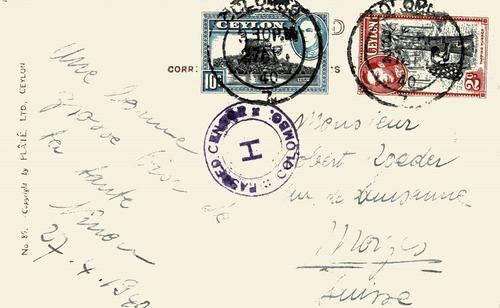 No. 85. Copyright by PLÂTÉ LTD., CEYLON
Une bonne
grosse bise
de
ta tante
Ninon
27.4.1940
CEYLON
10
CEYLON
2
COLOMBO
40
COLOMBO
40
CORR
S
PASSED CENSOR X COLOMBO.
H
Monsieur
Robert Loeder
de Lausanne
Morges
Suisse